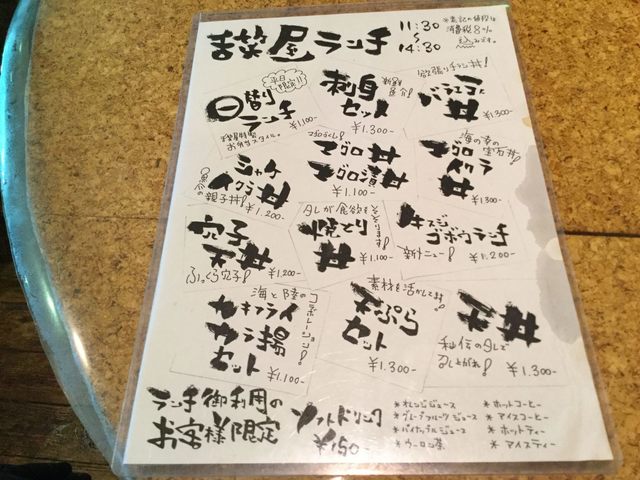 舌菜屋ランチ
11:30
〜
14:30
*表記の値段は
消費税8%
込みです。
平日
限定!!
日替り
ランチ
¥1.100-
お弁当スタイル。
刺身
セット
¥1.300-
欲張りチラシ丼!
バラエティ
丼
¥1.300-
シャケ
イクラ丼
親子丼!
¥1.200-
マグロづくし!
マグロ丼
マグロ漬丼
¥1.100-
海の幸の
宝石丼!
マグロ
イクラ
丼
¥1.300-
穴子
天丼
ふっくら穴子!
¥1.200-
タレが食欲を
そそります!
焼とり
丼
¥1.100-
牛スジ
ゴボウランチ
新メニュー!
¥1.200-
海と陸の
コラボレーション!
カキフライ
カラ揚
セット
¥1.100-
素材を活かしてます!
天ぷら
セット
¥1.300-
天丼
秘伝のタレで
召し上がれ!
¥1.300-
ランチ御利用の
お客様限定
ソフトドリンク
¥150-
*オレンジジュース
*グレープフルーツジュース
*パイナップルジュース
*ウーロン茶
*ホットコーヒー
*アイスコーヒー
*ホットティー
*アイスティー